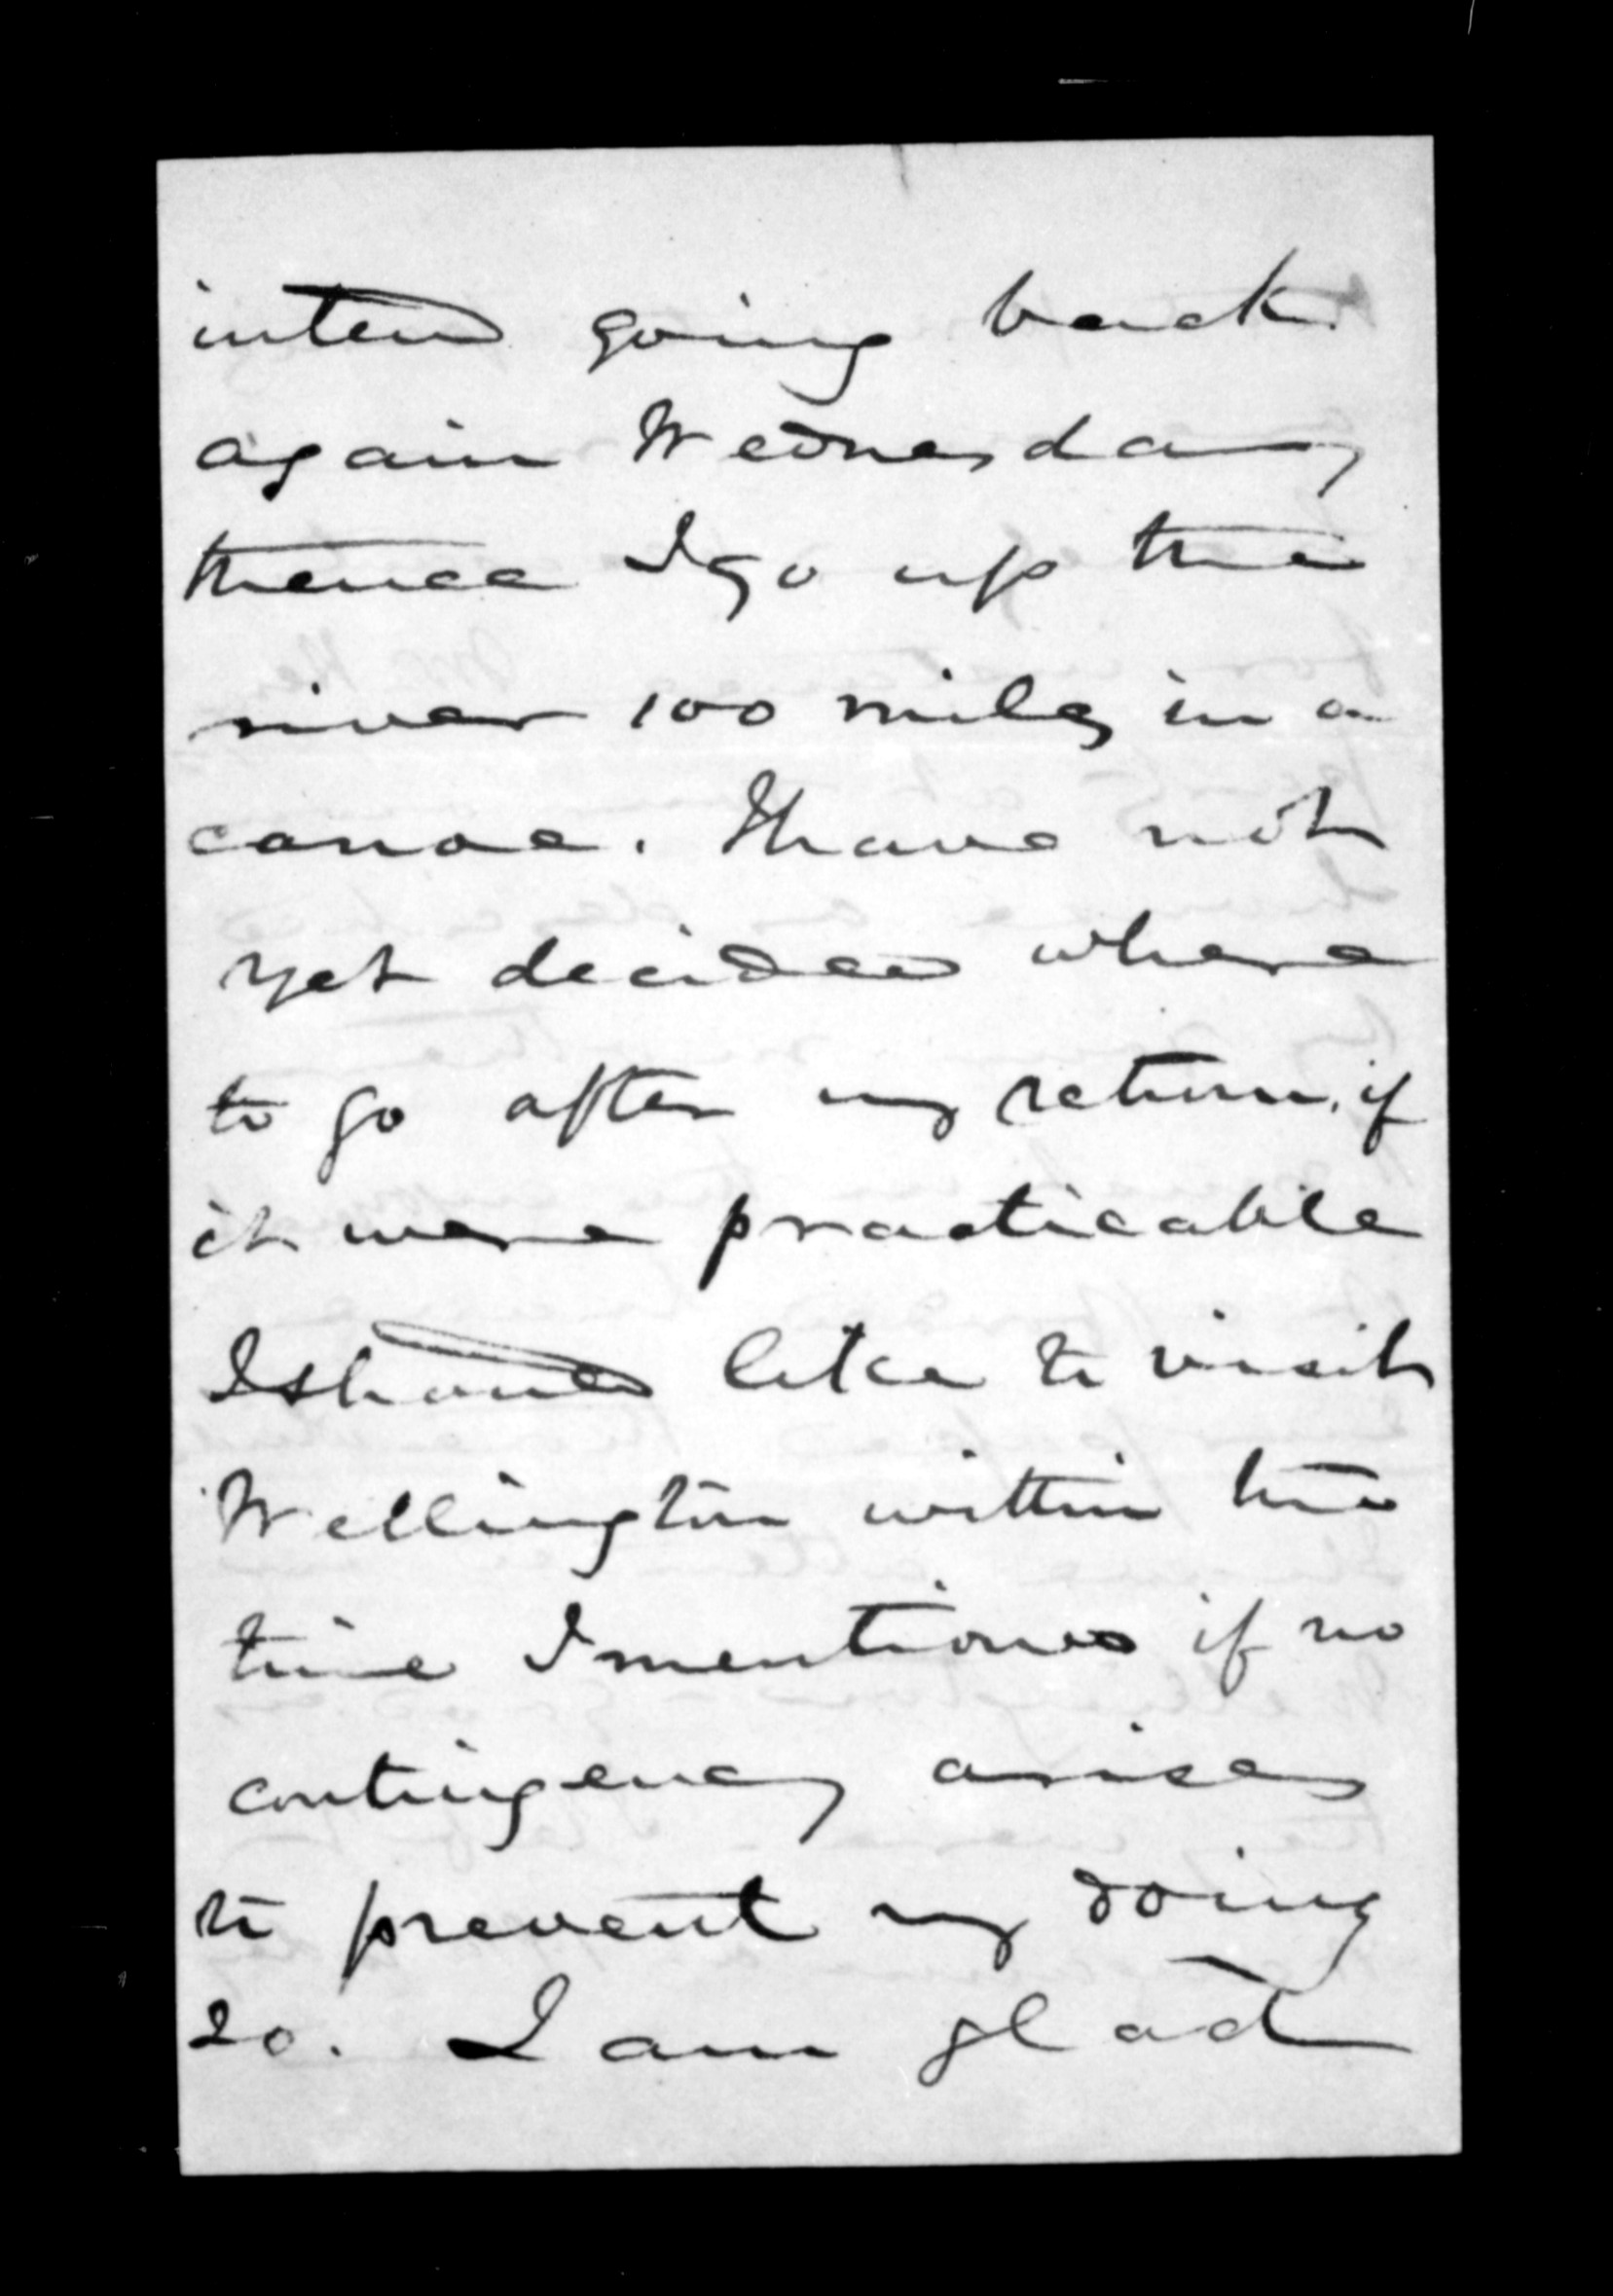 intend going back
again Wednesday
thence I go up the
river 100 miles in a
canoe. I have not
yet decided where
to go after my return, if
it were practicable
I should like to visit
Wellington within the
time I mentioned if no
contingency arises
to prevent my doing
so. I am glad